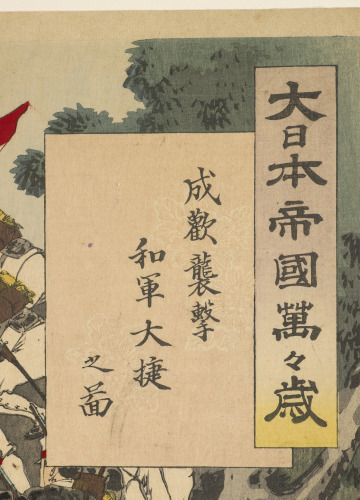 大日本帝國萬々歳
成歡襲擊
和軍大捷
之啚